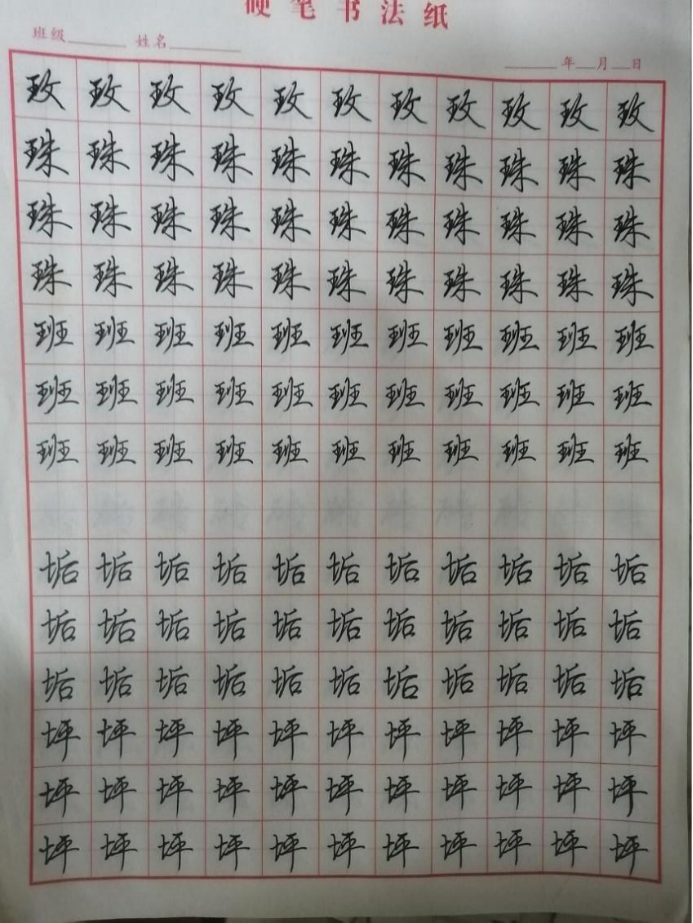 硬笔书法纸
班级 姓名
年 月 日
玫 玫 玫 玫 玫 玫 玫 玫 玫 玫 玫
珠 珠 珠 珠 珠 珠 珠 珠 珠 珠 珠
珠 珠 珠 珠 珠 珠 珠 珠 珠 珠 珠
珠 珠 珠 珠 珠 珠 珠 珠 珠 珠 珠
班 班 班 班 班 班 班 班 班 班 班
班 班 班 班 班 班 班 班 班 班 班
班 班 班 班 班 班 班 班 班 班 班
垢 垢 垢 垢 垢 垢 垢 垢 垢 垢 垢
垢 垢 垢 垢 垢 垢 垢 垢 垢 垢 垢
垢 垢 垢 垢 垢 垢 垢 垢 垢 垢 垢
坪 坪 坪 坪 坪 坪 坪 坪 坪 坪 坪
坪 坪 坪 坪 坪 坪 坪 坪 坪 坪 坪
坪 坪 坪 坪 坪 坪 坪 坪 坪 坪 坪